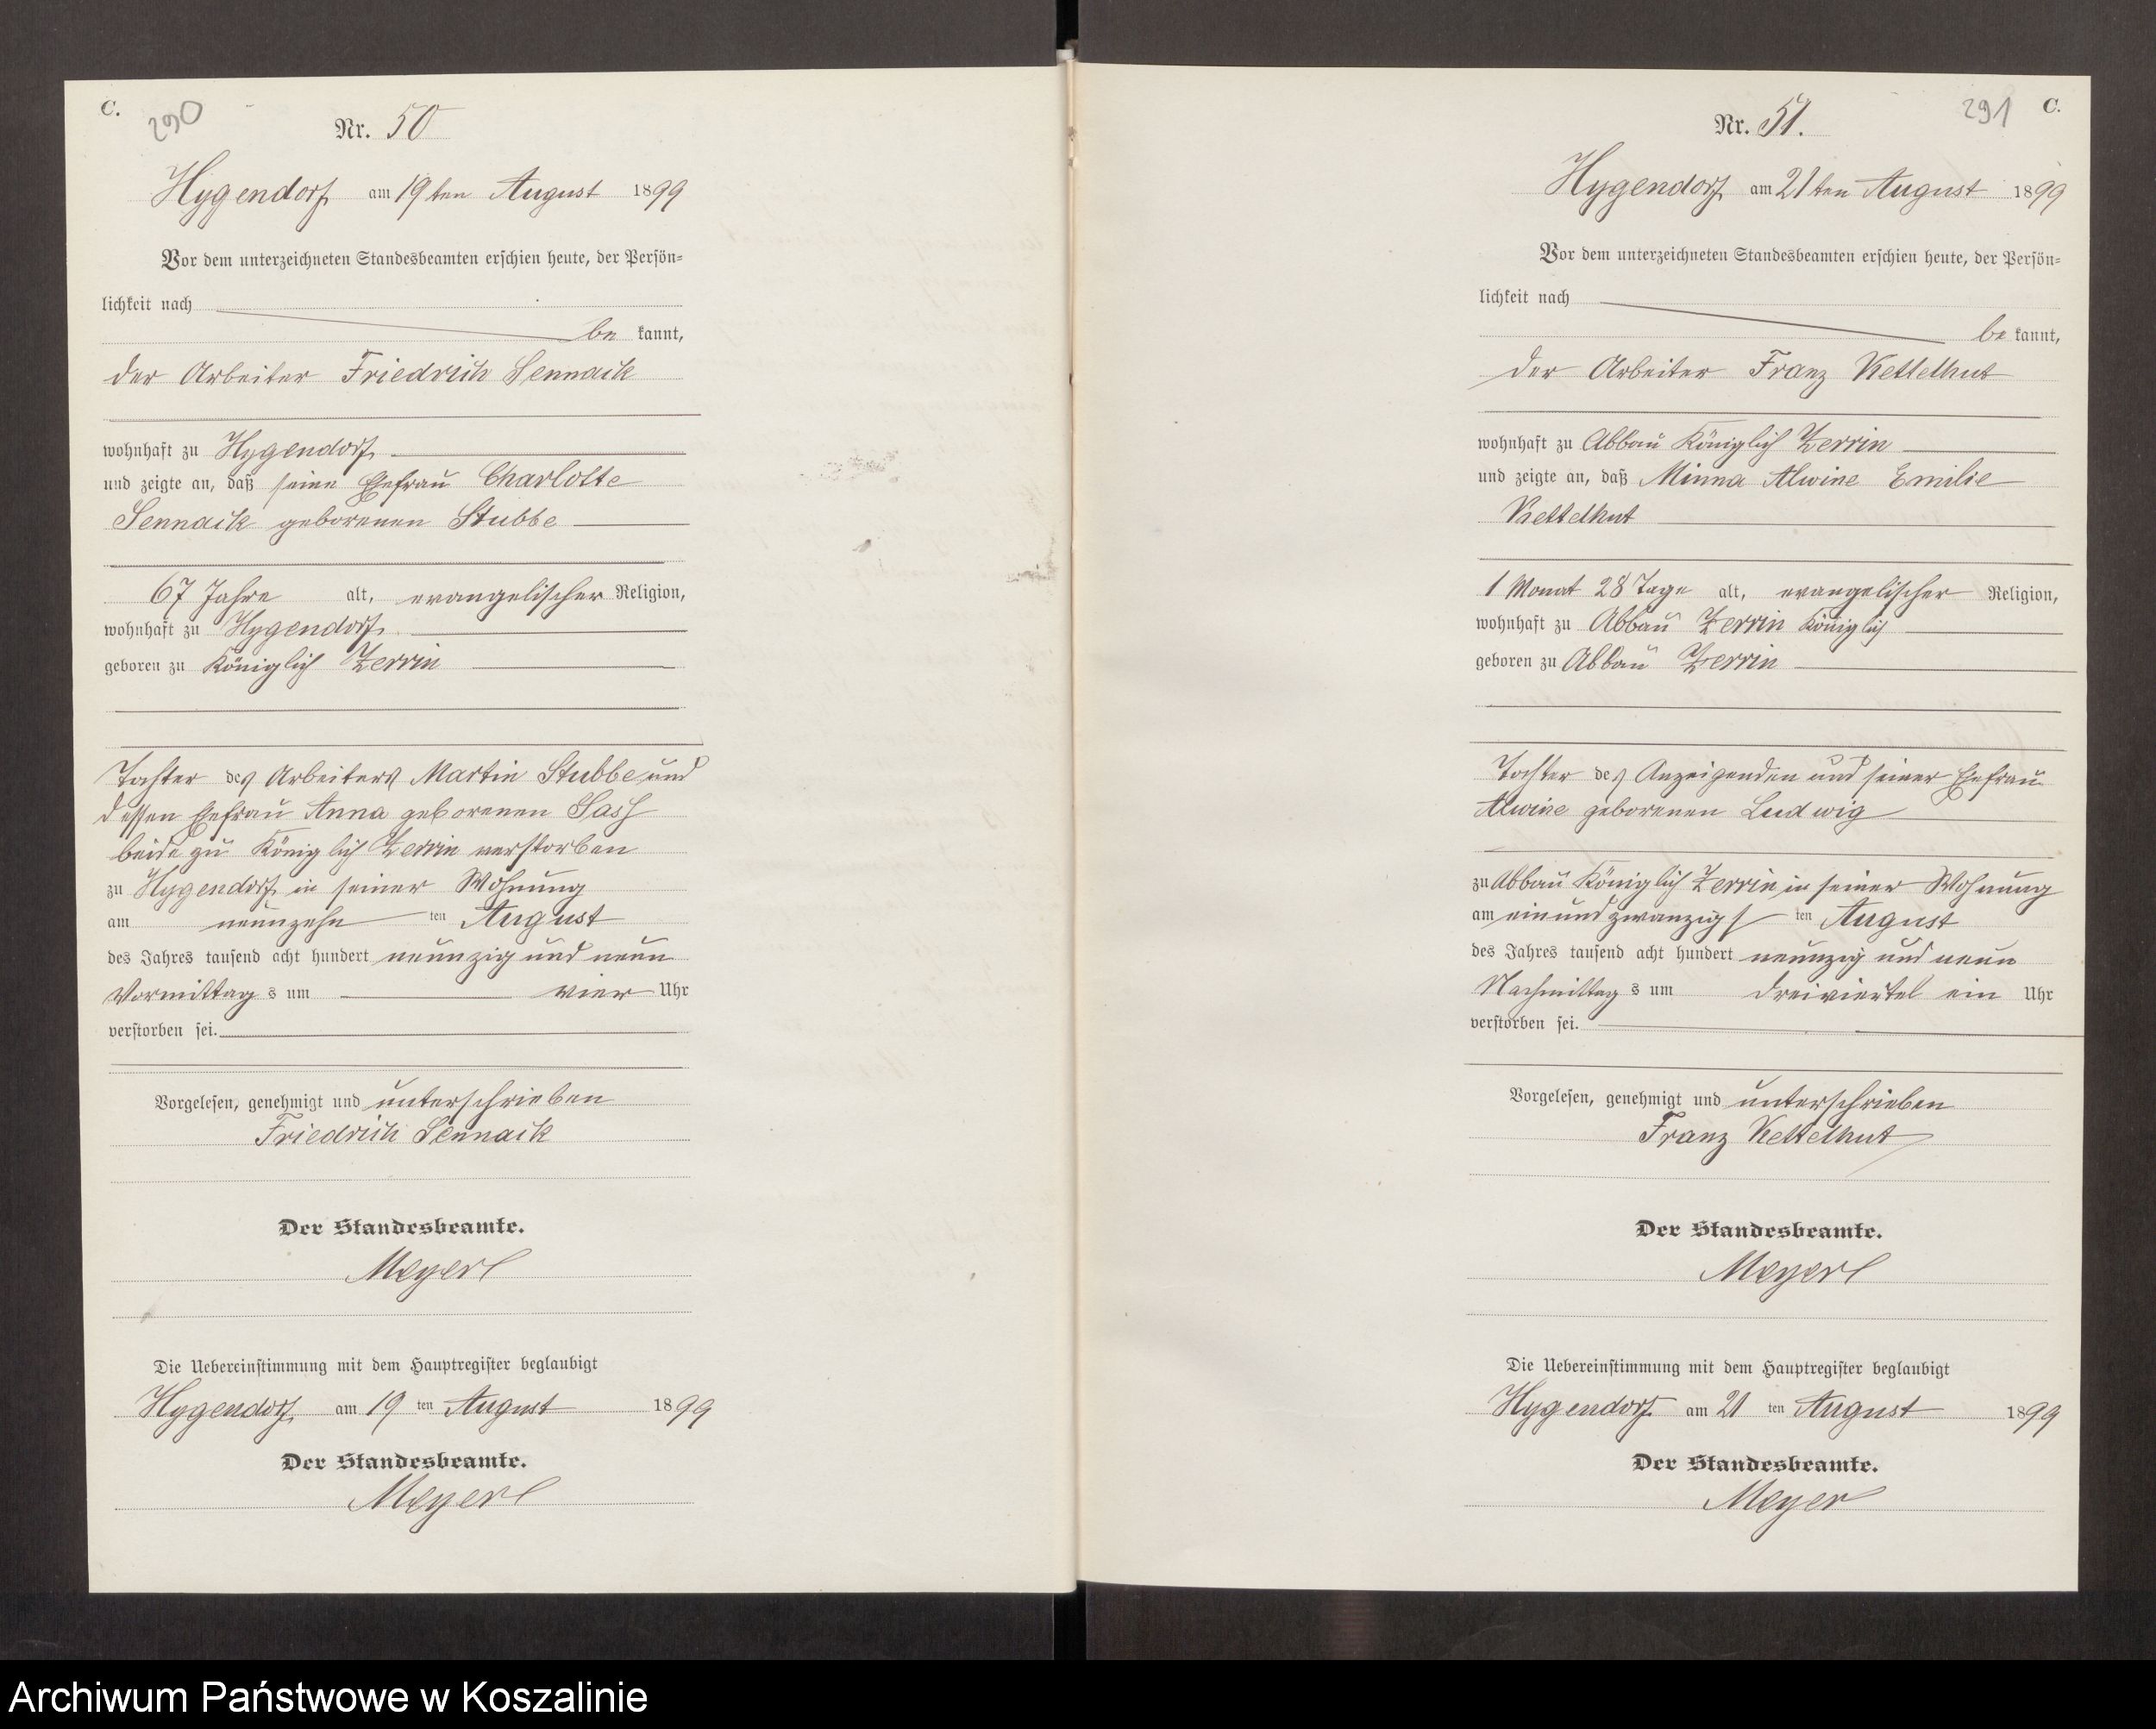 C.
290
Nr. 50
Hygendorf am 19ten August 1899
Vor dem unterzeichneten Standesbeamten erschien heute, der Persön-
lichkeit nach
be kannt,
der Arbeiter Friedrich Sennack
wohnhaft zu Hygendorf
und zeigte an, daß seine Ehefrau Charlotte
Sennack geborenen Stubbe
67 Jahre alt, evangelischer Religion,
wohnhaft zu Hygendorf
geboren zu Königlich Zerrin
Tochter des Arbeiters Martin Stubbe und
dessen Ehefrau Anna geborenen
beide zu Königlich Zerrin verstorben
zu Hygendorf in seiner Wohnung
am neunzehn ten August
des Jahres tausend acht hundert neunzig und neun
Vormittag s um vier Uhr
verstorben sei.
Vorgelesen, genehmigt und unterschrieben
Friedrich Sennack
Der Standesbeamte.
Meyer
Die Uebereinstimmung mit dem Hauptregister beglaubigt
Hygendorf am 19 ten August 1899
Der Standesbeamte.
Meyer
291
C.
Nr. 51.
Hygendorf am 21ten August 1899
Vor dem unterzeichneten Standesbeamten erschien heute, der Persön-
lichkeit nach
be kannt,
der Arbeiter Franz Kettelhut
wohnhaft zu Abbau Königlich Zerrin
und zeigte an, daß Minna Alwine Emilie
Kettelhut
1 Monat 28 Tage alt, evangelischer Religion,
wohnhaft zu Abbau Zerrin Königlich
geboren zu Abbau Zerrin
Tochter des Anzeigenden und seiner Ehefrau
Alwine geborenen Ludwig
zu Abbau Königlich Zerrin in seiner Wohnung
am einundzwanzigs ten August
des Jahres tausend acht hundert neunzig und neun
Nachmittag s um dreiviertel ein Uhr
verstorben sei.
Vorgelesen, genehmigt und unterschrieben
Franz Kettelhut
Der Standesbeamte.
Meyer
Die Uebereinstimmung mit dem Hauptregister beglaubigt
Hygendorf am 21 ten August 1899
Der Standesbeamte.
Meyer
Archiwum Państwowe w Koszalinie